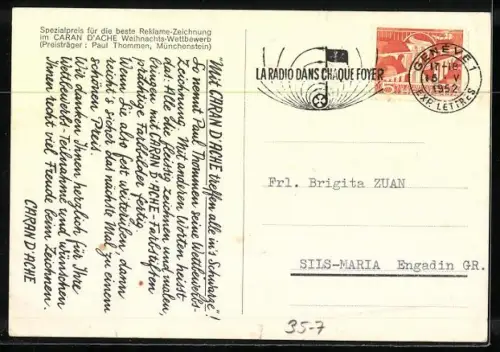 Spezialpreis für die beste Reklame-Zeichnung
im CARAN D'ACHE Weihnachts-Wettbewerb
(Preisträger : Paul Thommen, Münchenstein)
"Mit CARAN D'ACHE treffen alle in's Schwarze"!
So nennt Paul Thommen seine Wettbewerbs-
Zeichnung. Mit anderen Worten heisst
das: Alle die fleissig zeichnen und malen,
bringen mit CARAN D'ACHE-Farbstiften
prächtige Farbbilder fertig.
Wenn Sie also fest weiterüben, dann
reicht's sicher das nächste Mal zu einem
schönen Preis.
Wir danken Ihnen herzlich für Ihre
Wettbewerb-Teilnahme und wünschen
Ihnen recht viel Freude beim Zeichnen.
CARAN D'ACHE
LA RADIO DANS CHAQUE FOYER
GENÈVE 1
1952
EXP. LETTRES
Frl. Brigita ZUAN
SILS-MARIA Engadin GR.
35-7